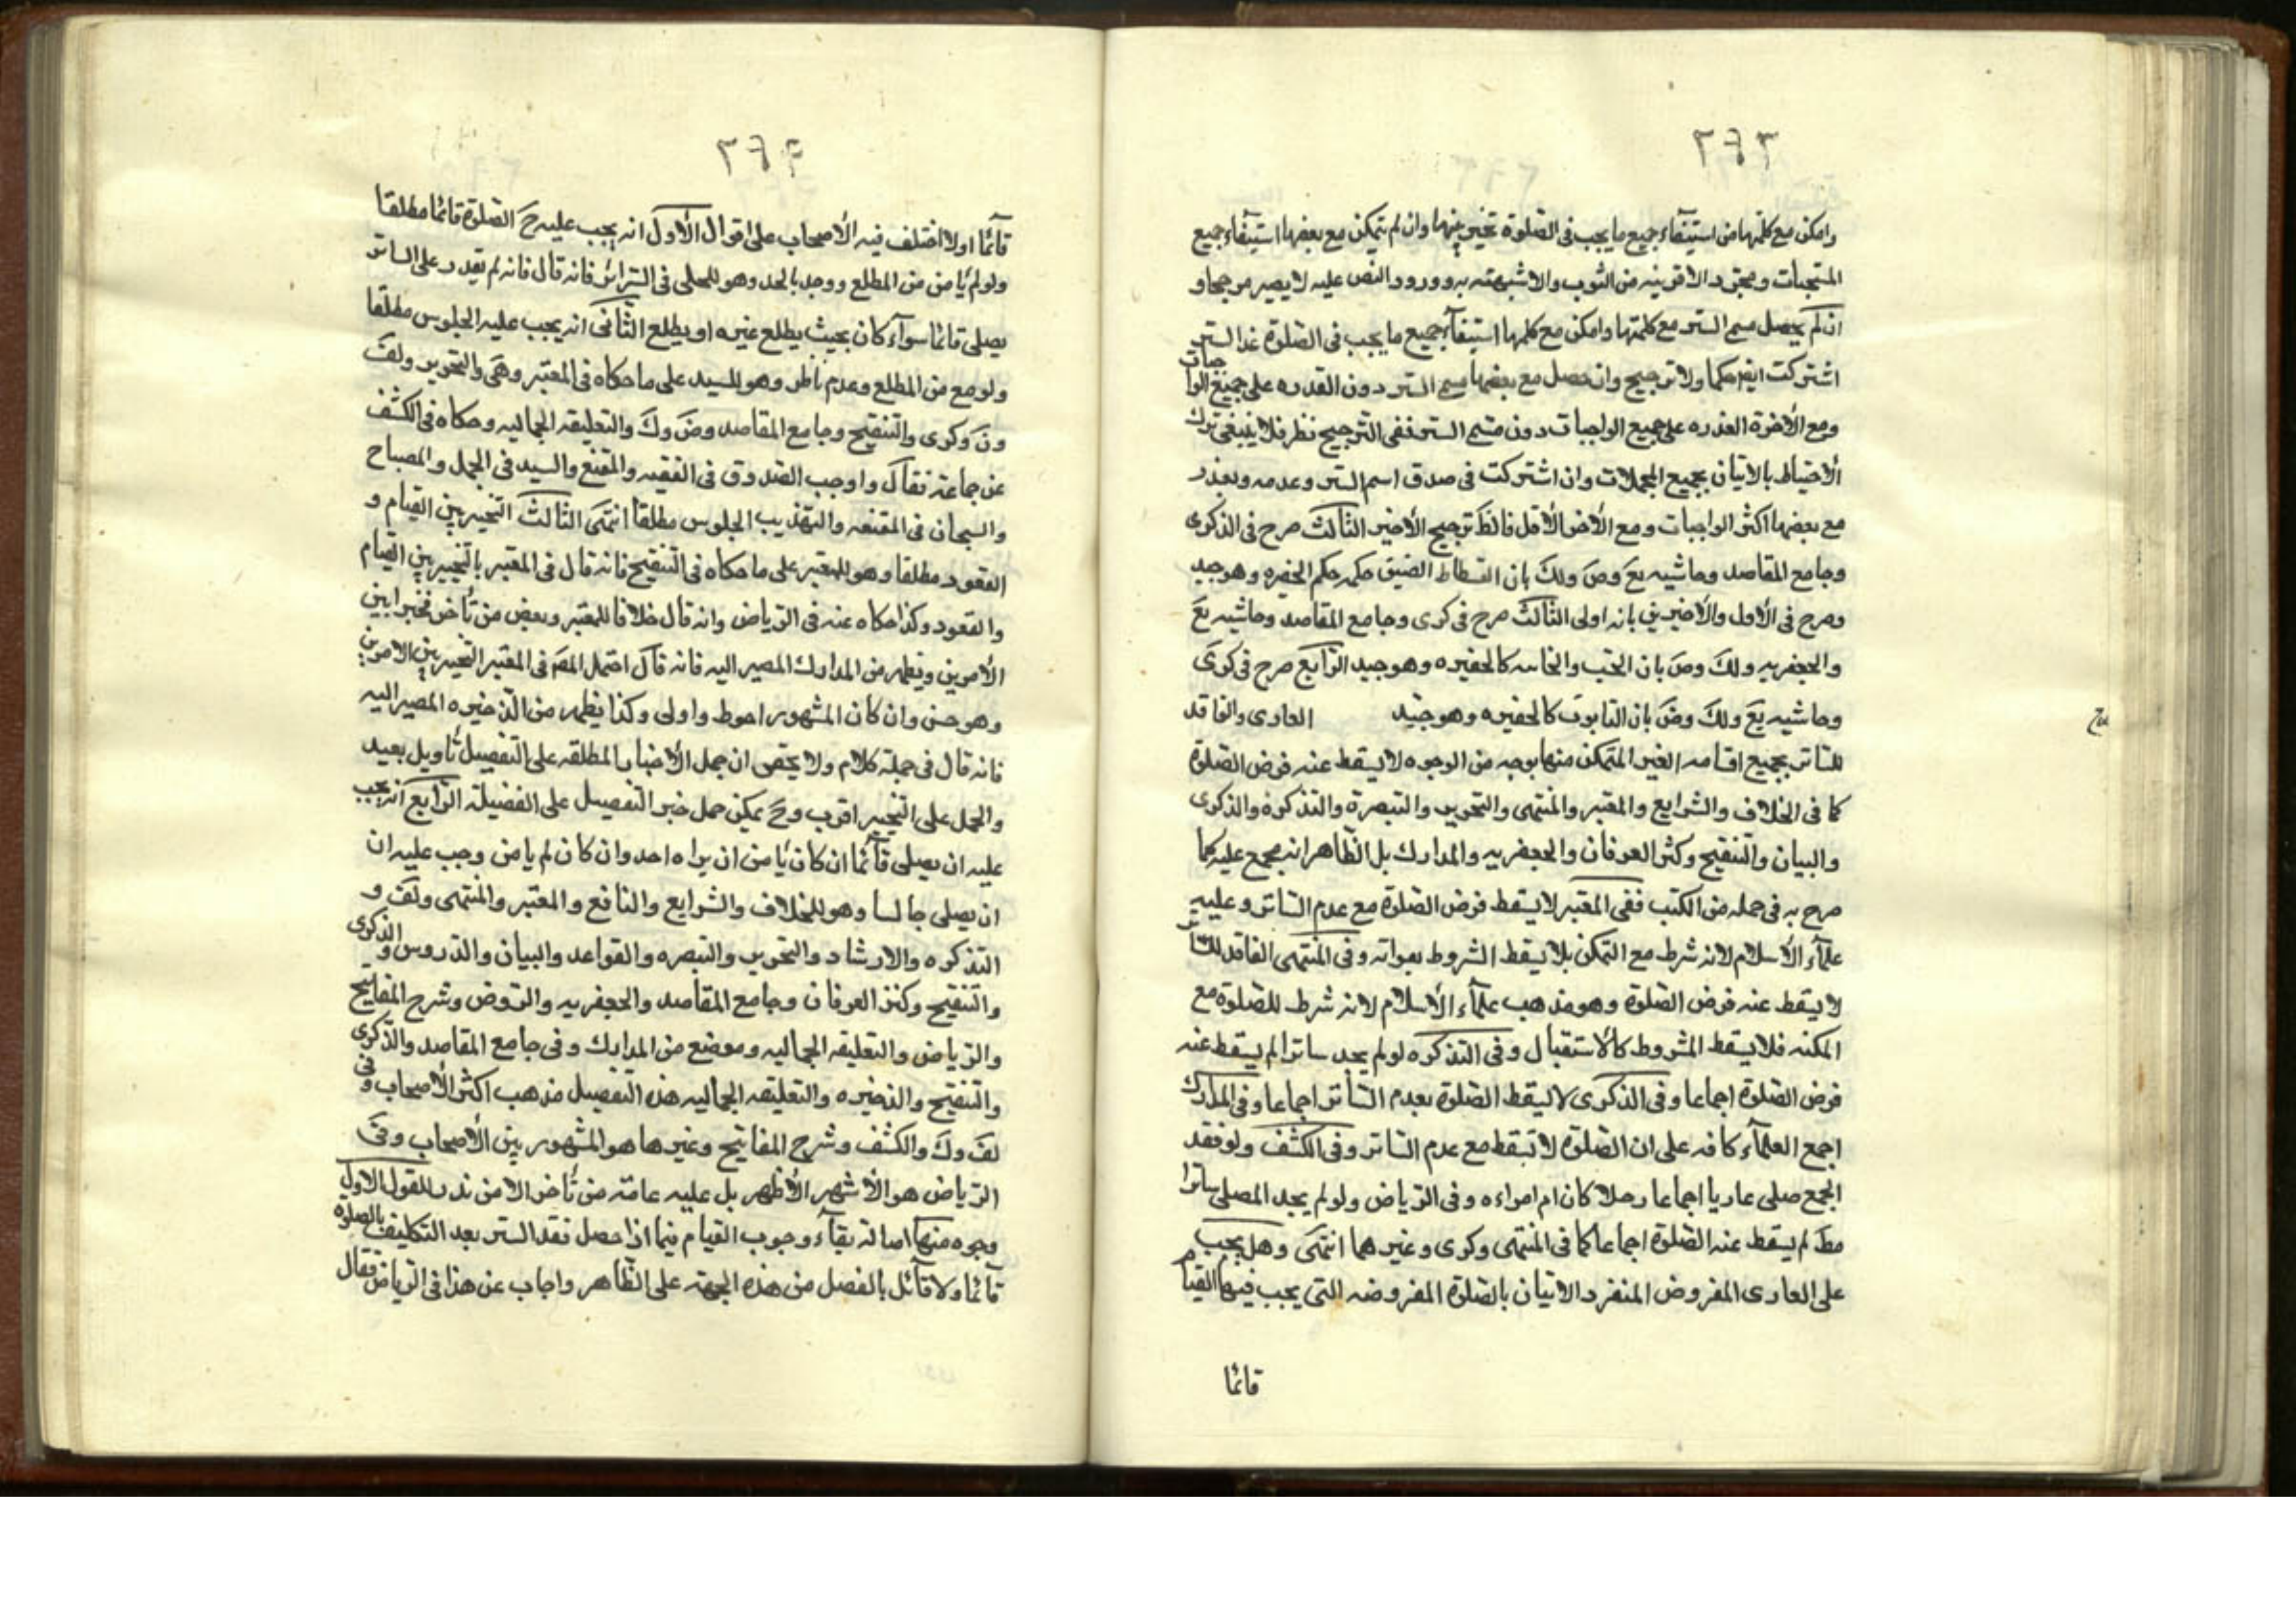 ٢٦٣
وامكن مع كلتهما من استيفاء جميع ما يجب في الصلوة تخير بينهما وان لم يتمكن مع بعضها استيفاء جميع
المستحبات ومجرد الاقربية من الثوب والاشبهية به وورود النص عليه لا يصير مرجحا و
ان لم يحصل مسمى الستر مع كلتهما وامكن مع كلهما استيفاء جميع ما يجب في الصلوة غير الستر
اشتركت ايضا حكما ولا ترجيح وان حصل مع بعضها مسمى الستر دون القدره على جميع الواجبات
ومع الأخرة القدره على جميع الواجبات دون مسمى الستر ففى الترجيح نظر فلا ينبغى ترك
الأحتياط بالاتيان بجميع المحملات وان اشتركت في صدق اسم الستر وعدمه وتعذر
مع بعضها اكثر الواجبات ومع الأخر الأقل فالظ ترجيح الأخير الثالث صرح في الذكرى
وجامع المقاصد وحاشيه يع وض ولك بان الفسطاط الضيق حكمه حكم الحفيره وهو جيد
وصرح في الأول والأخيرين بانه اولى الثالث صرح في كرى وجامع المقاصد وحاشيه يع
والجعفريه ولك وض بان الحب والخابيه كالحفيره وهو جيد الرابع صرح في كرى
وحاشيه يع ولك وض بان التابوت كالحفيره وهو جيد العارى والفاقد
للساتر بجميع اقسامه الغير المتمكن منها بوجه من الوجوه لا يسقط عنه فرض الصلوة
كما في الخلاف والشرايع والمعتبر والمنتهى والتحرير والتبصرة والتذكرة والذكرى
والبيان والتنقيح وكنز العرفان والجعفريه والمدارك بل الظاهر انه مجمع عليه كما
صرح به في جمله من الكتب ففي المعتبر لا يسقط فرض الصلوة مع عدم الساتر وعليه
علمآء الأسلام لانه شرط مع التمكن فلا يسقط المشروط بفواته وفى المنتهى الفاقد للساتر
لا يسقط عنه فرض الصلوة وهو مذهب علمآء الأسلام لانه شرط للصلوة مع
المكنه فلا يسقط المشروط كالأستقبال وفى التذكره لو لم يجد ساترا لم يسقط عنه
فرض الصلوة اجماعا وفى الذكرى لا يسقط الصلوة بعدم الساتر اجماعا وفى المدارك
اجمع العلمآء كافه على ان الصلوة لا تسقط مع عدم الساتر وفى الكشف ولو فقد
الجميع صلى عاريا اجماعا رجلا كان ام امراءه وفى الرياض ولو لم يجد المصلى ساترا
مط لم يسقط عنه الصلوة اجماعا كما في المنتهى وكرى وغيرهما انتهى وهل يجب
على العارى المفروض المنفرد الاتيان بالصلوة المفروضه التى يجب فيها القيام
قائما
٢٦٤
قآئما اولا اختلف فيه الأصحاب على اقوال الأول انه يجب عليه ح الصلوة قائما مطلقا
ولو لم يأمن من المطلع ووجد بالحد وهو للحلى في السرائر فانه قال فانه لم يقدر على الساتر
يصلى قائما سوآء كان بحيث يطلع غيره او يطلع الثانى انه يجب عليه الجلوس مطلقا
ولو مع من المطلع وعدم ناظر وهو للسيد على ما حكاه في المعتبر وهى والتحرير ولف
ون وكرى والتنقيح وجامع المقاصد وض وك والتعليقه الجماليه وحكاه في الكشف
عن جماعة فقال واوجب الصدوق في الفقيه والمقنع والسيد في الجمل والمصباح
والشيخان في المقنعه والتهذيب الجلوس مطلقا انتهى الثالث التخيير بين القيام و
القعود مطلقا وهو للمعتبر على ما حكاه في التنقيح فانه قال في المعتبر بالتخيير بين القيام
والقعود وكذا حكاه عنه في الرياض وانه قال خلافا للمعتبر وبعض من تأخر فخيرا بين
الأمرين ويظهر من المدارك المصير اليه فانه قال احتمل المص في المعتبر التخيير بين الامرين
وهو حسن وان كان المشهور احوط واولى وكذا يظهر من الذخيره المصير اليه
فانه قال في جملة كلام ولا يخفى ان حمل الأخبار المطلقه على التفصيل تأويل بعيد
والحمل على التخيير اقرب وح يمكن حمل خبر التفصيل على الفضيلة الرابع انه يجب
عليه ان يصلى قآئما ان كان يأمن ان يراه احد وان كان لم يامن وجب عليه ان
ان يصلى جالسا وهو للخلاف والشرايع والنافع والمعتبر والمنتهى ولف و
التذكره والارشاد والتحرير والتبصره والقواعد والبيان والدروس والذكرى
والتنقيح وكنز العرفان وجامع المقاصد والجعفريه والروض وشرح المفاتيح
والرياض والتعليقه الجماليه وموضع من المدارك وفى جامع المقاصد والذكرى
والتنقيح والذخيره والتعليقه الجماليه هذا التفصيل مذهب اكثر الأصحاب وفى
لف وك والكشف وشرح المفاتيح وغيرها هو المشهور بين الأصحاب وفى
الرياض هو الأشهر الأظهر بل عليه عامة من تأخر الا من ندر للقول الاول
وجوه منها اصالة بقآء وجوب القيام فيما اذا حصل فقد الستر بعد التكليف بالصلوة
قآئما ولا قآئل بالفصل من هذه الجهة على الظاهر واجاب عن هذا في الرياض فقال